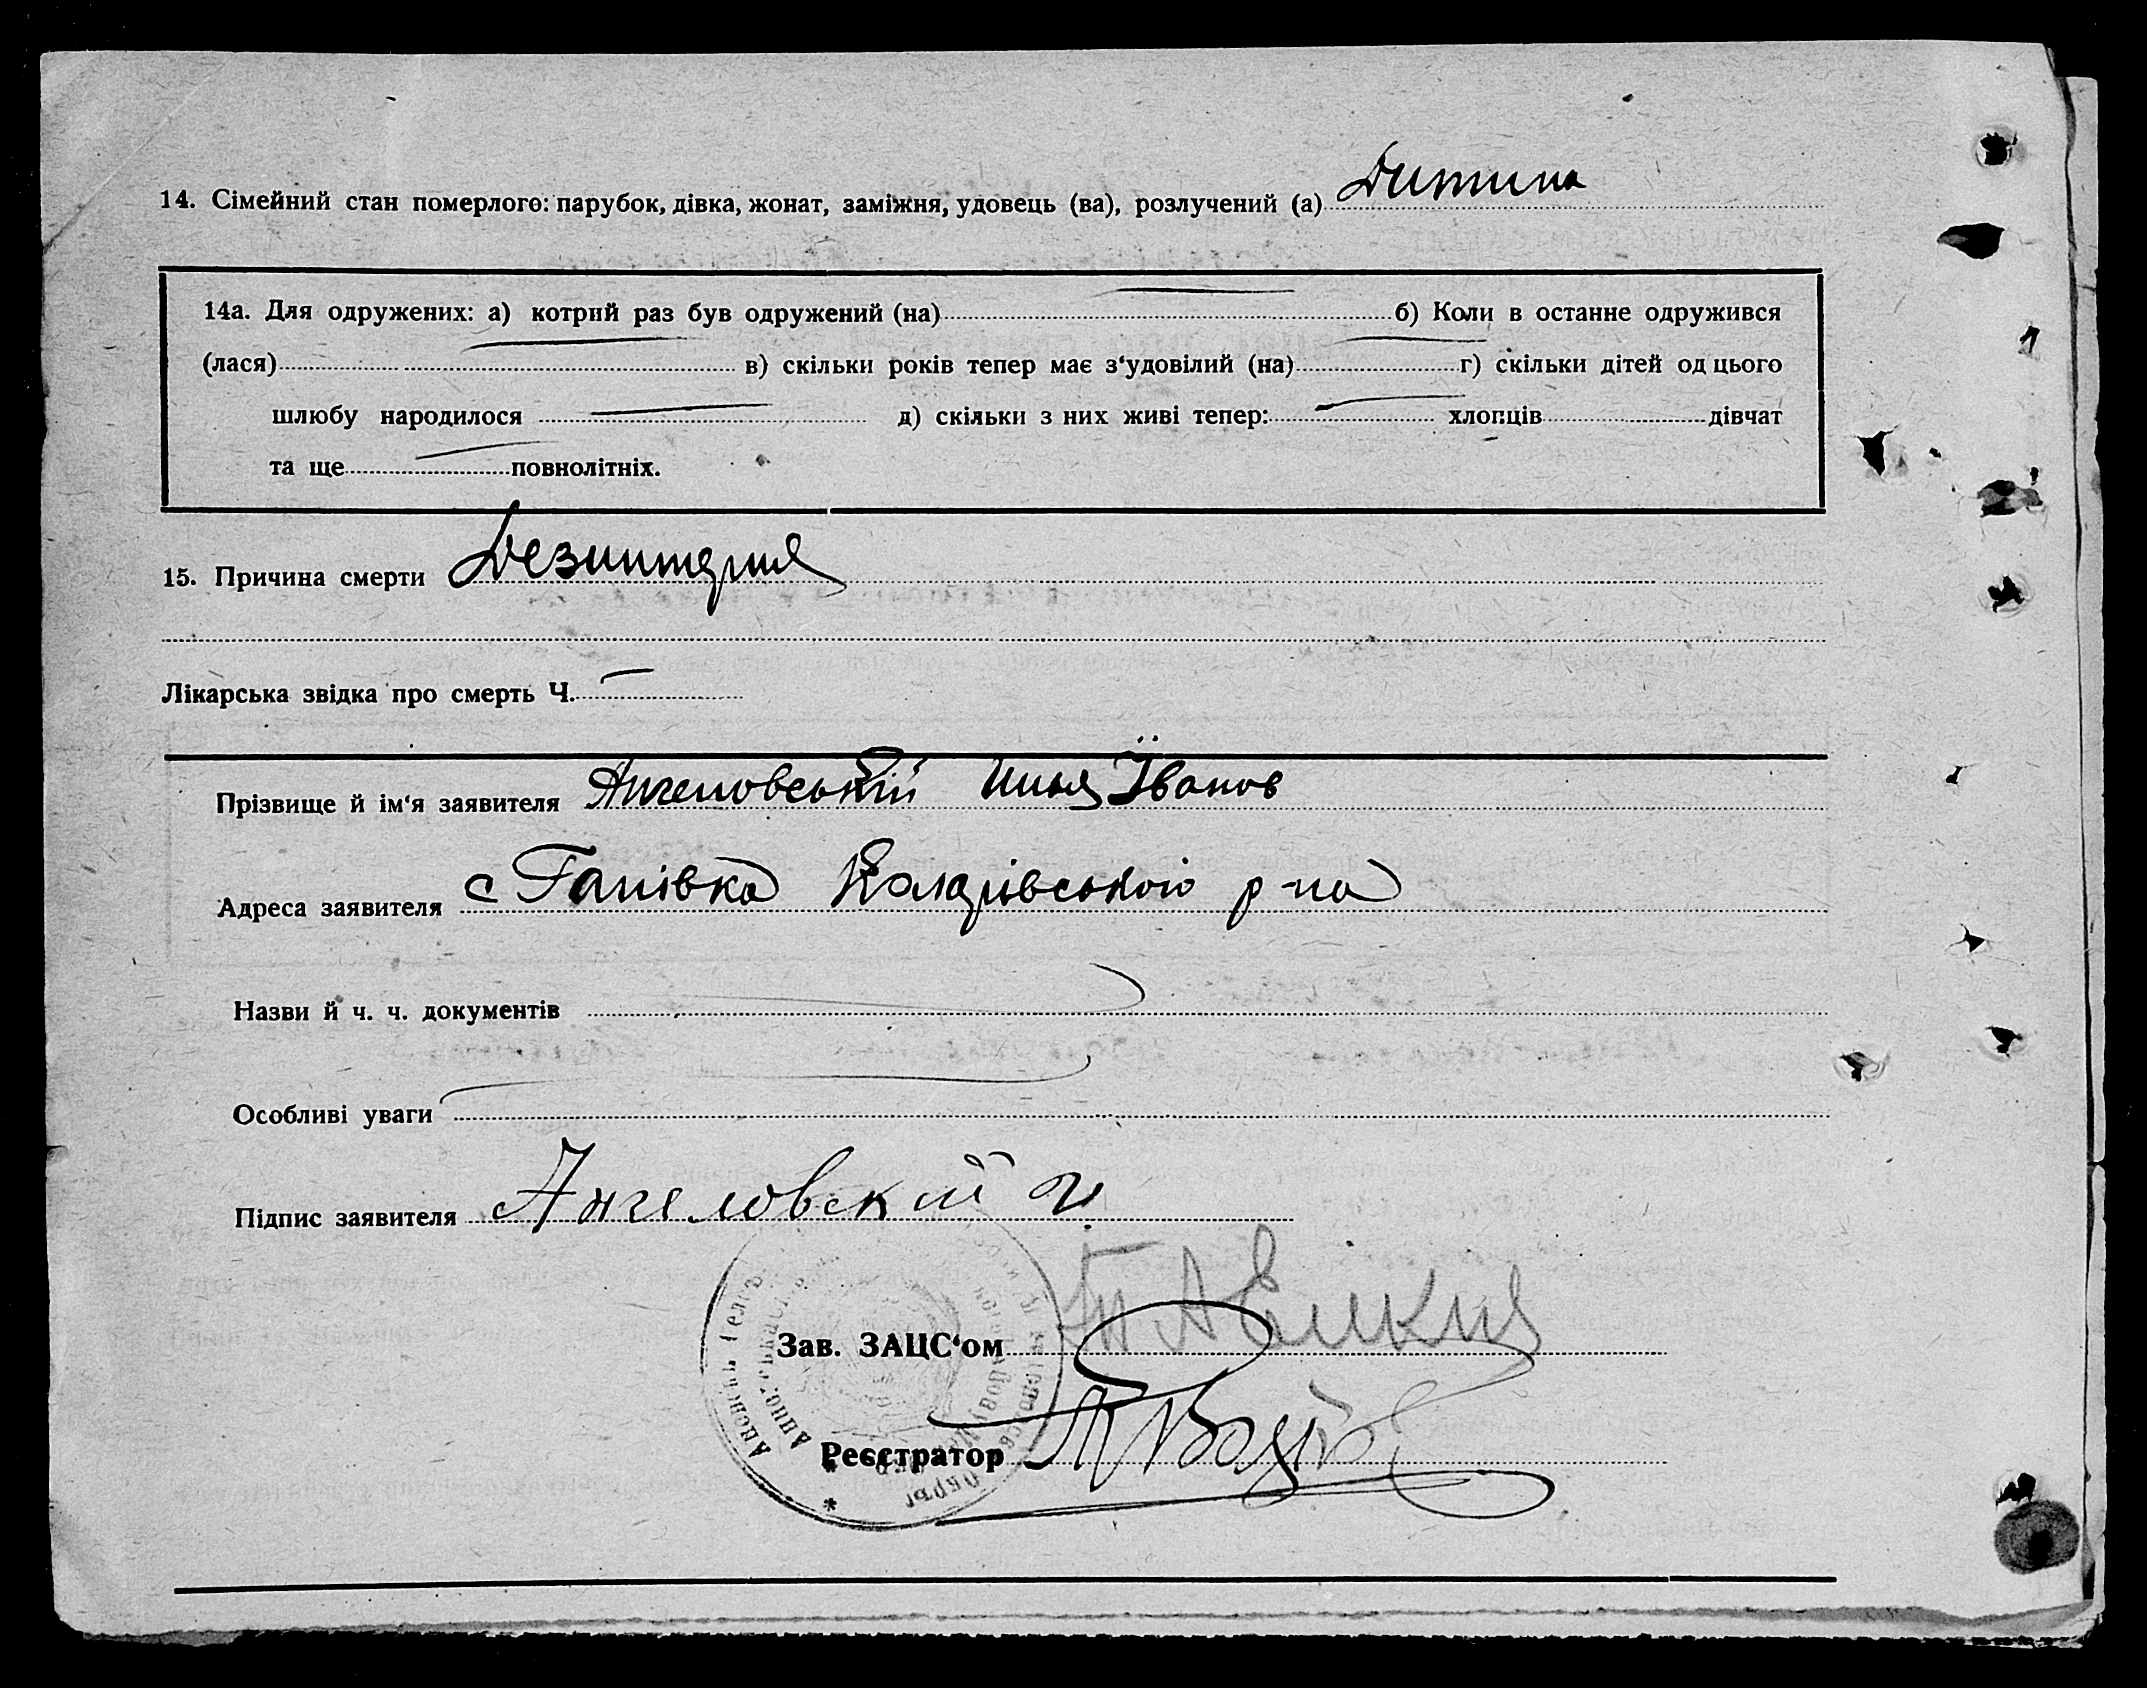 14. Сімейний стан померлого: парубок, дівка, жонат, заміжня, удовець (ва), розлучений (а) Дитина
14а. Для одружених: а) котрий раз був одружений (на) б) Коли в останне одружився
(лася) в) скільки років тепер має з‘удовілий (на) г) скільки дітей од цього
шлюбу народилося д) скільки з них живі тепер: хлопців дівчат
та ще повнолітніх.
15. Причина смерти Дезинтерия
Лікарська звідка про смерть Ч.
Прізвище й ім‘я заявителя Ангеловський Илья Їванов
Адреса заявителя с Ганівка р-на
Назви й ч. ч. документів
Особливі уваги
Підпис заявителя Ангеловский И
Зав. ЗАЦС‘ом
Реєстратор